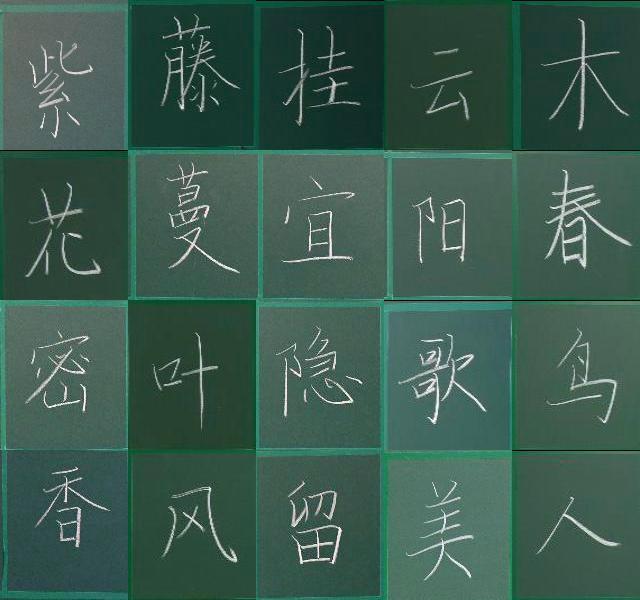 紫藤挂云木
花蔓宜阳春
密叶隐歌鸟
香风留美人